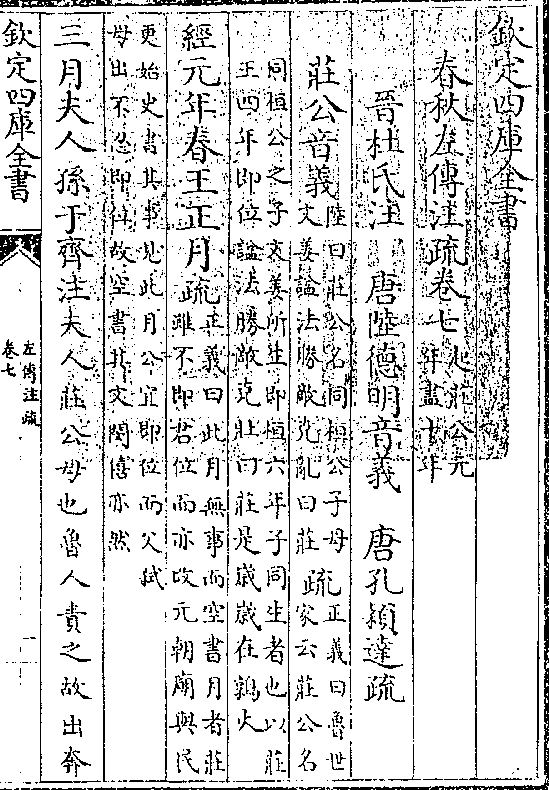 欽定四庫全書
春秋左傳注疏卷七起莊公元年盡十年
晉杜氏注　唐陸德明音義　唐孔穎達疏
莊公音義陸曰莊公名同桓公子母文姜諡法勝敵克亂曰莊疏正義曰魯世家云莊公名
同桓公之子文姜所生即桓六年子同生者也以莊王四年即位諡法勝敵克壯曰莊是歲歲在鶉火
經元年春王正月疏正義曰此月無事而空書月者莊雖不即君位而亦改元朝廟與民
更始史書其事見此月公宜即位而父弒母出不忍即位故空書其文閔僖亦然
三月夫人孫于齊注夫人莊公母也魯人責之故出奔
欽定四庫全書
左傳注疏
卷七
一